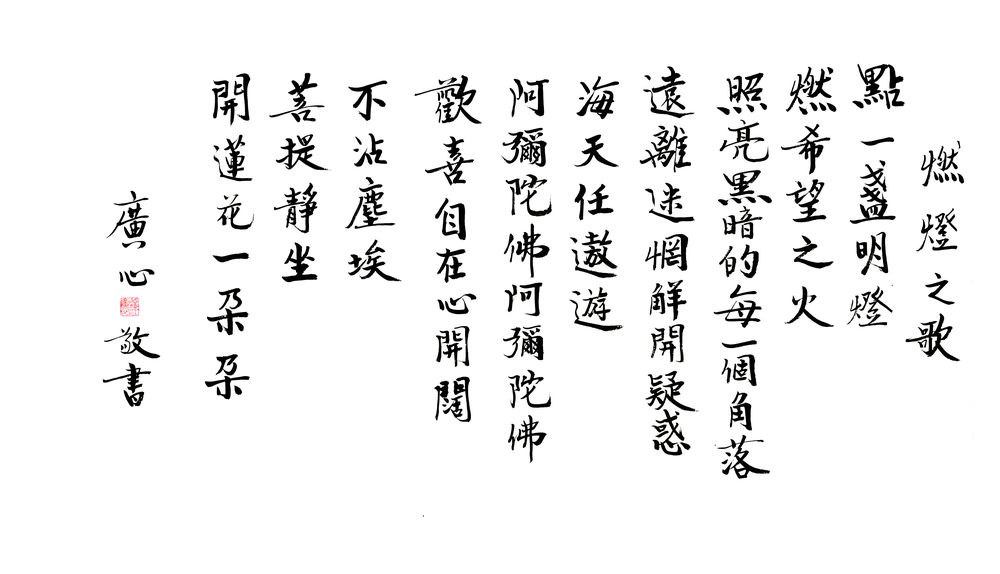 燃燈之歌
點一盞明燈
燃希望之火
照亮黑暗的每一個角落
遠離迷惘解開疑惑
海天任遨遊
阿彌陀佛阿彌陀佛
歡喜自在心開闊
不沾塵埃
菩提靜坐
開蓮花一朵朵
廣心
敬書